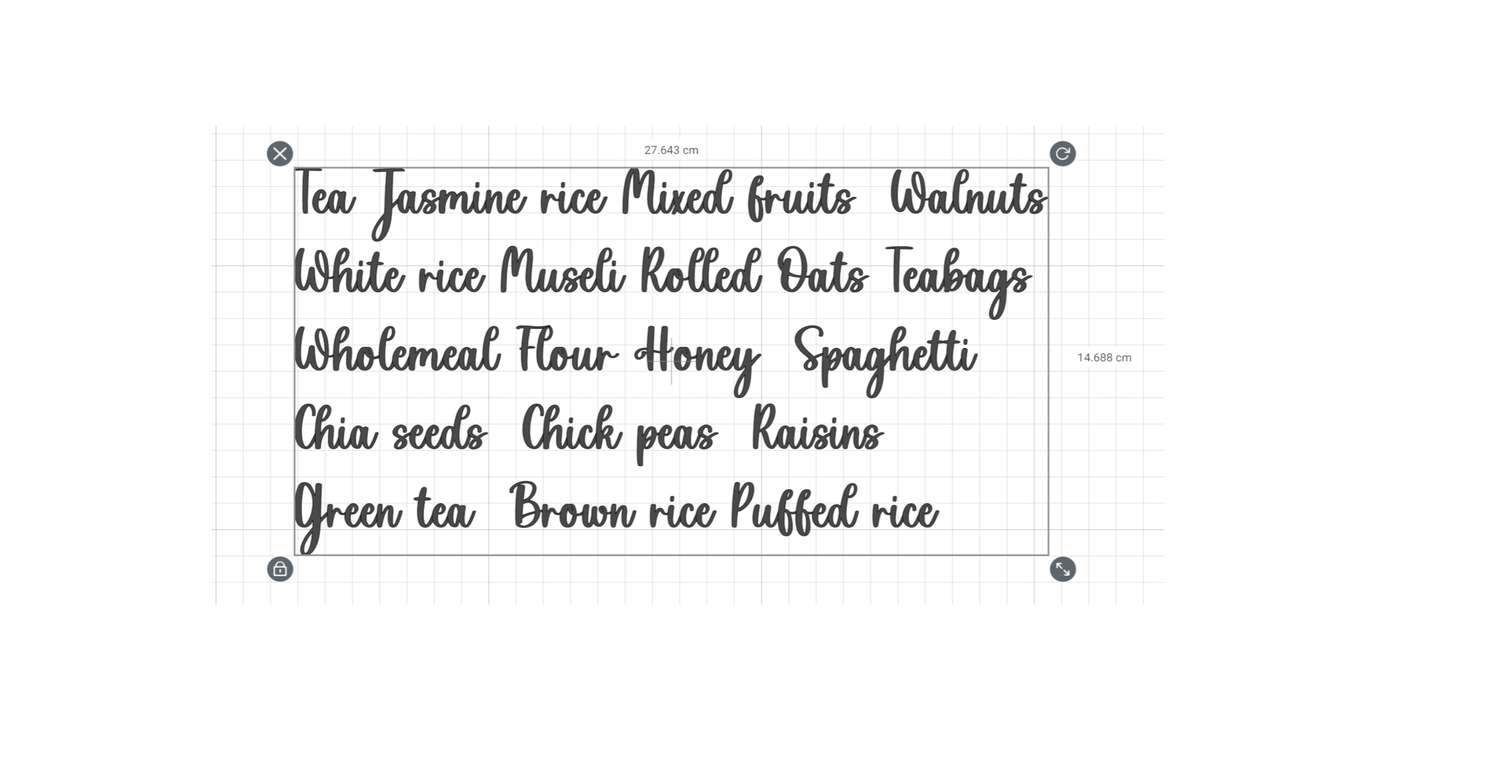 27.643 cm
Tea Jasmine rice Mixed fruits Walnuts
White rice Museli Rolled Oats Teabags
14.688 cm
Wholemeal Flour Honey Spaghetti
Chia seeds Chick peas Raisins
Green tea Brown rice Puffed rice